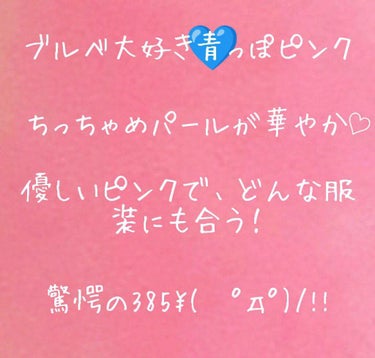 ブルベ大好き青っぽピンク
ちっちゃめパールが華やか♡
優しいピンクで、どんな服
装にも合う!
驚愕の385¥(　ﾟдﾟ)/!!